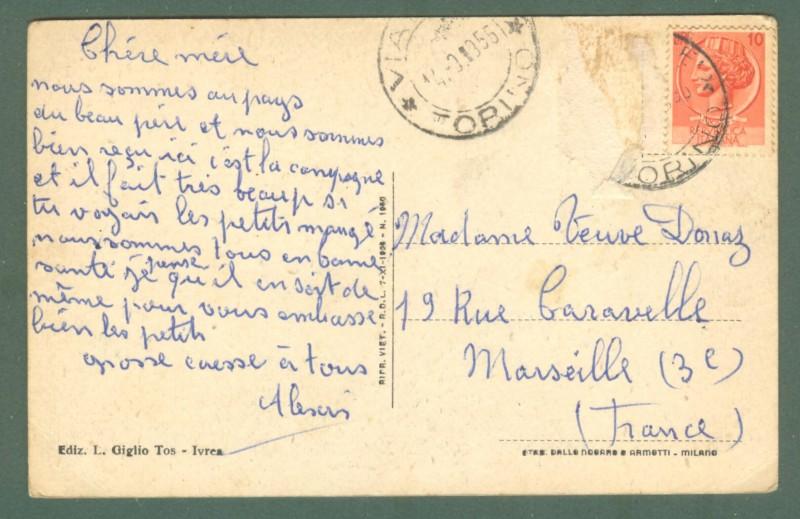 Chére mére
nous sommes au pays
du beau pére et nous sommes
bien reçu ici c'est la campagne
et il fait très beau si
tu voyais les petits mangé
nous sommes tous en bonne
santé je pense qu'il en soit de
même pour vous embrasse
bien les petits
grosse caresse à tous
VIA
1955
TORINO
10
TORINO
Madame Veuve Donaz
19 Rue Caravelle
Marseille (3e)
(France)
RIPR. VIET. - R.D.L. 7-XI-1926 - N. 1966
Ediz. L. Giglio Tos - Ivrea
STAB. DALLE NOGARE & ARMETTI - MILANO